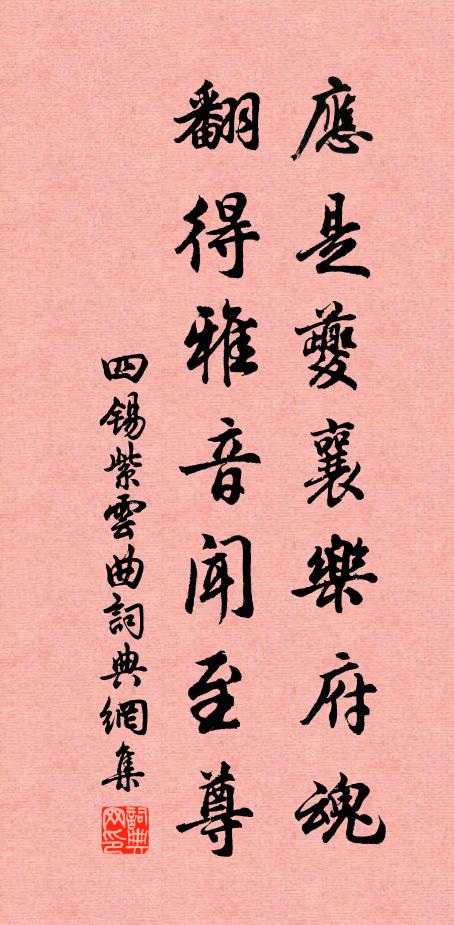 應是夔襄樂府魂
翻得雅音聞至尊
四錫紫雲曲詞典網集
詞典网印